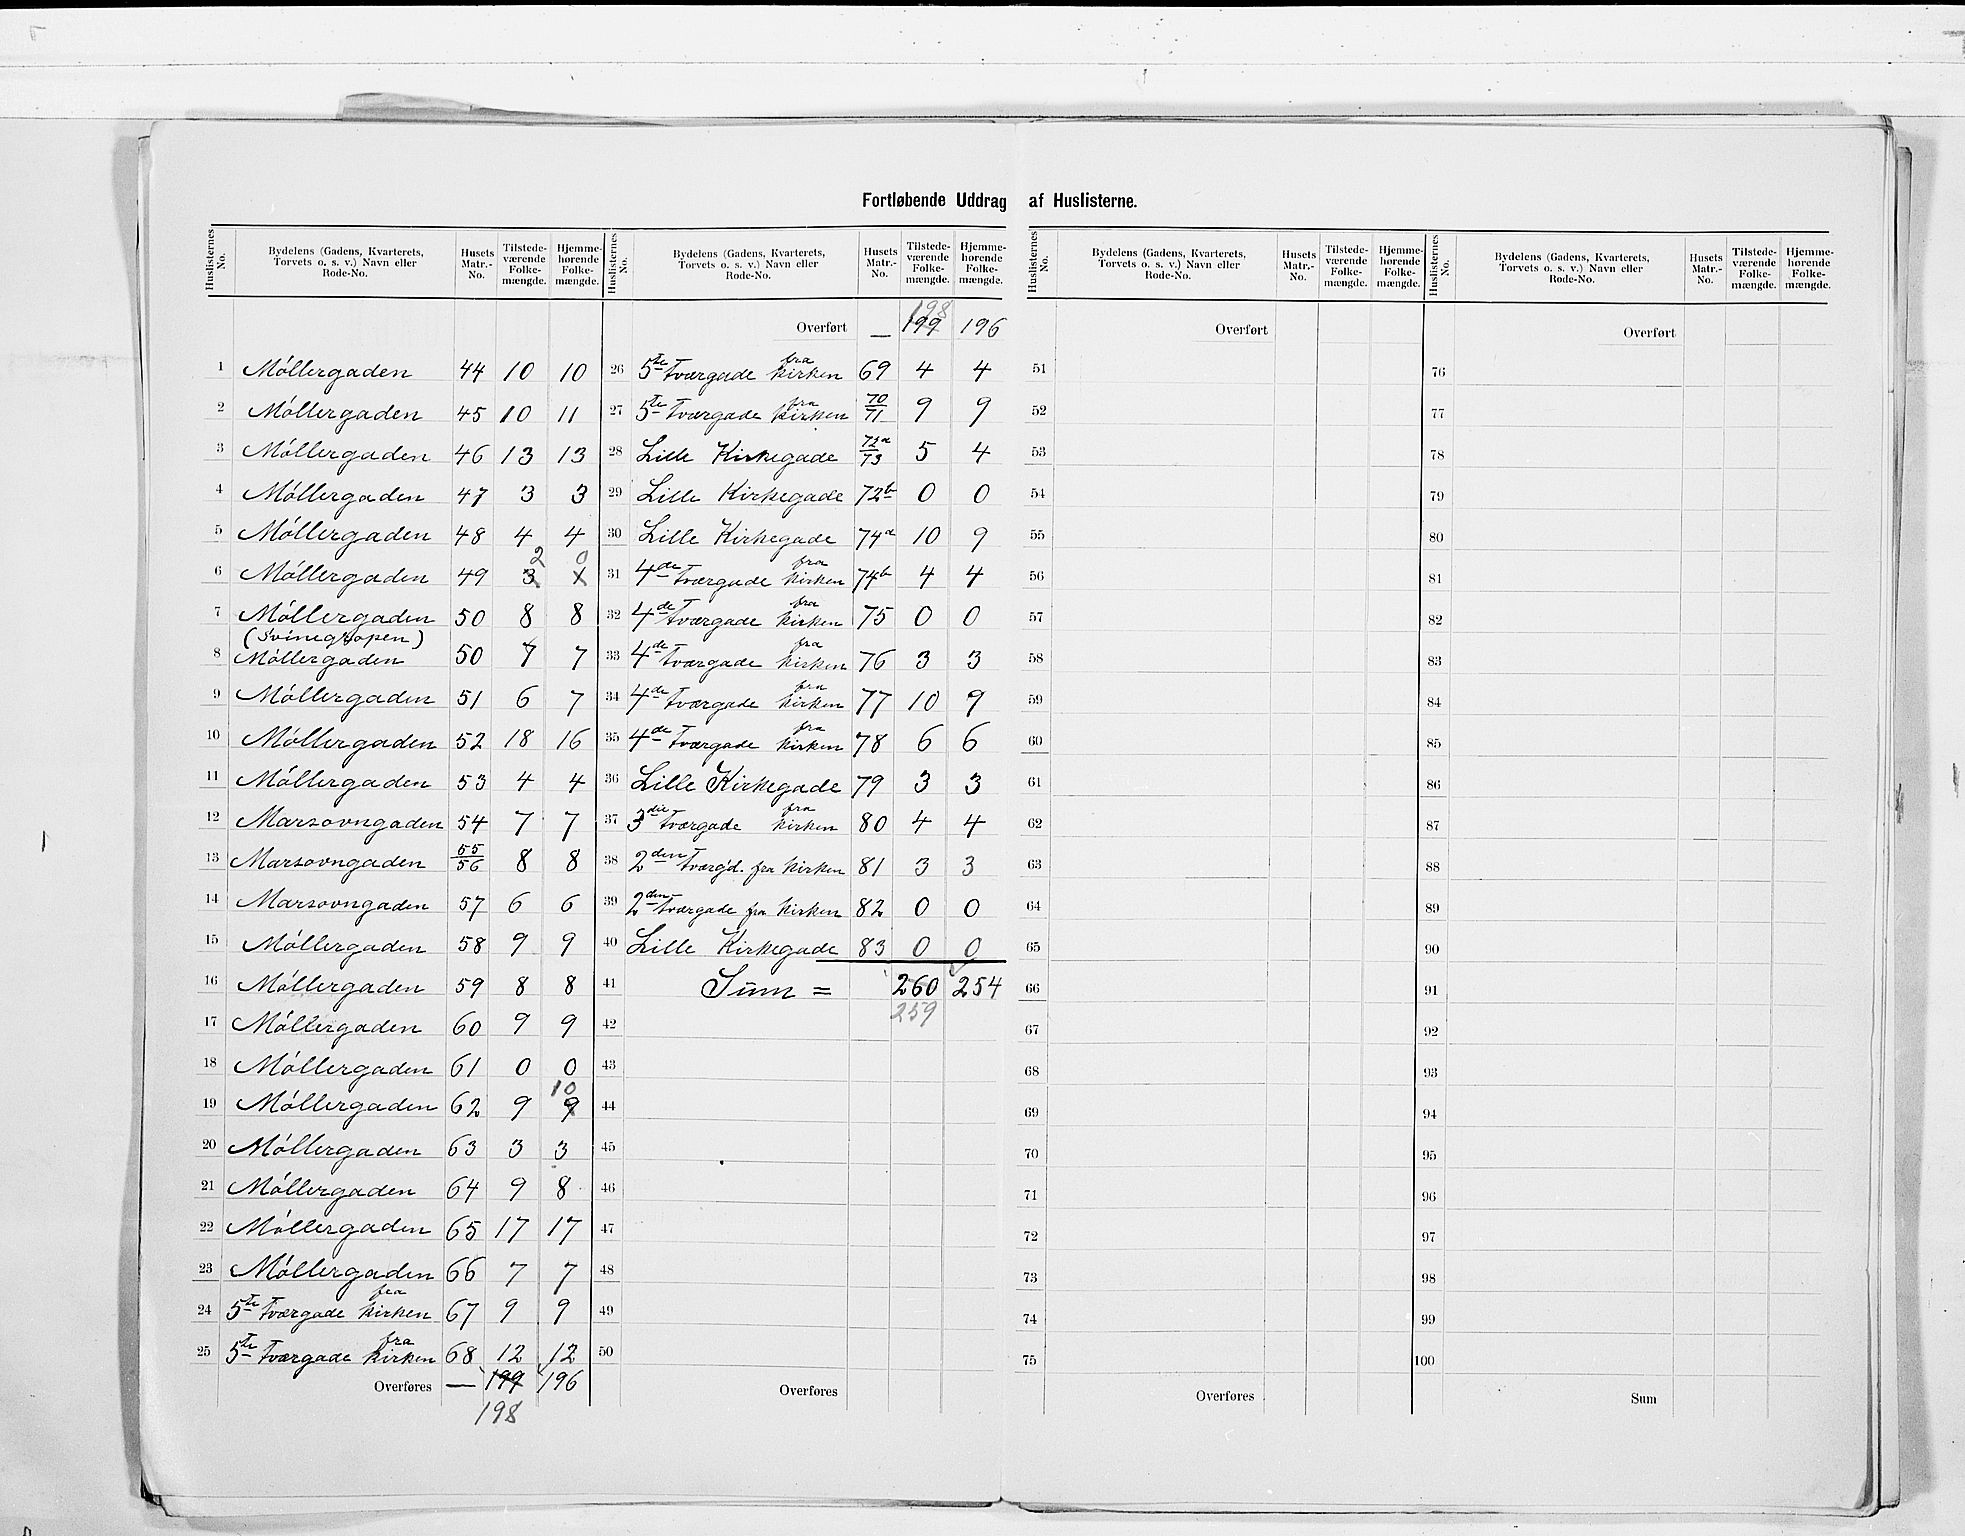 Fortløbende Uddrag af Huslisterne.
Huslisternes No. | Bydelens (Gadens, Kvarterets, Torvets o. s. v.) Navn eller Rode-No. | Husets Matr.-No. | Tilstede-værende Folke-mængde. | Hjemme-hørende Folke-mængde.
1 Møllergaden 44 10 10
2 Møllergaden 45 10 11
3 Møllergaden 46 13 13
4 Møllergaden 47 3 3
5 Møllergaden 48 4 4
2 0
6 Møllergaden 49 3 1
7 Møllergaden 50 8 8
(Svinegropen)
8 Møllergaden 50 7 7
9 Møllergaden 51 6 7
10 Møllergaden 52 18 16
11 Møllergaden 53 4 4
12 Marsovngaden 54 7 7
13 Marsovngaden 55/56 8 8
14 Marsovngaden 57 6 6
15 Møllergaden 58 9 9
16 Møllergaden 59 8 8
17 Møllergaden 60 9 9
18 Møllergaden 61 0 0
10
19 Møllergaden 62 9 9
20 Møllergaden 63 3 3
21 Møllergaden 64 9 8
22 Møllergaden 65 17 17
23 Møllergaden 66 7 7
24 5te Tværgade fra Kirken 67 9 9
25 5te Tværgade fra Kirken 68 12 12
Overføres — 199 196
198
Huslisternes No. | Bydelens (Gadens, Kvarterets, Torvets o. s. v.) Navn eller Rode-No. | Husets Matr.-No. | Tilstede-værende Folke-mængde. | Hjemme-hørende Folke-mængde.
198
Overført — 199 196
26 5te Tværgade fra Kirken 69 4 4
27 5te Tværgade fra Kirken 70/71 9 9
28 Lille Kirkegade 72a/73 5 4
29 Lille Kirkegade 72b 0 0
30 Lille Kirkegade 74a 10 9
31 4de Tværgade fra Kirken 74b 4 4
32 4de Tværgade fra Kirken 75 0 0
33 4de Tværgade fra Kirken 76 3 3
34 4de Tværgade fra Kirken 77 10 9
35 4de Tværgade fra Kirken 78 6 6
36 Lille Kirkegade 79 3 3
37 3die Tværgade fra Kirken 80 4 4
38 2den Tværgd. fra Kirken 81 3 3
39 2den Tværgade fra Kirken 82 0 0
40 Lille Kirkegade 83 0 0
41 Sum = 260 254
259
42
43
44
45
46
47
48
49
50
Overføres
Huslisternes No. | Bydelens (Gadens, Kvarterets, Torvets o. s. v.) Navn eller Rode-No. | Husets Matr.-No. | Tilstede-værende Folke-mængde. | Hjemme-hørende Folke-mængde.
Overført
51
52
53
54
55
56
57
58
59
60
61
62
63
64
65
66
67
68
69
70
71
72
73
74
75
Overføres
Huslisternes No. | Bydelens (Gadens, Kvarterets, Torvets o. s. v.) Navn eller Rode-No. | Husets Matr.-No. | Tilstede-værende Folke-mængde. | Hjemme-hørende Folke-mængde.
Overført
76
77
78
79
80
81
82
83
84
85
86
87
88
89
90
91
92
93
94
95
96
97
98
99
100
Sum